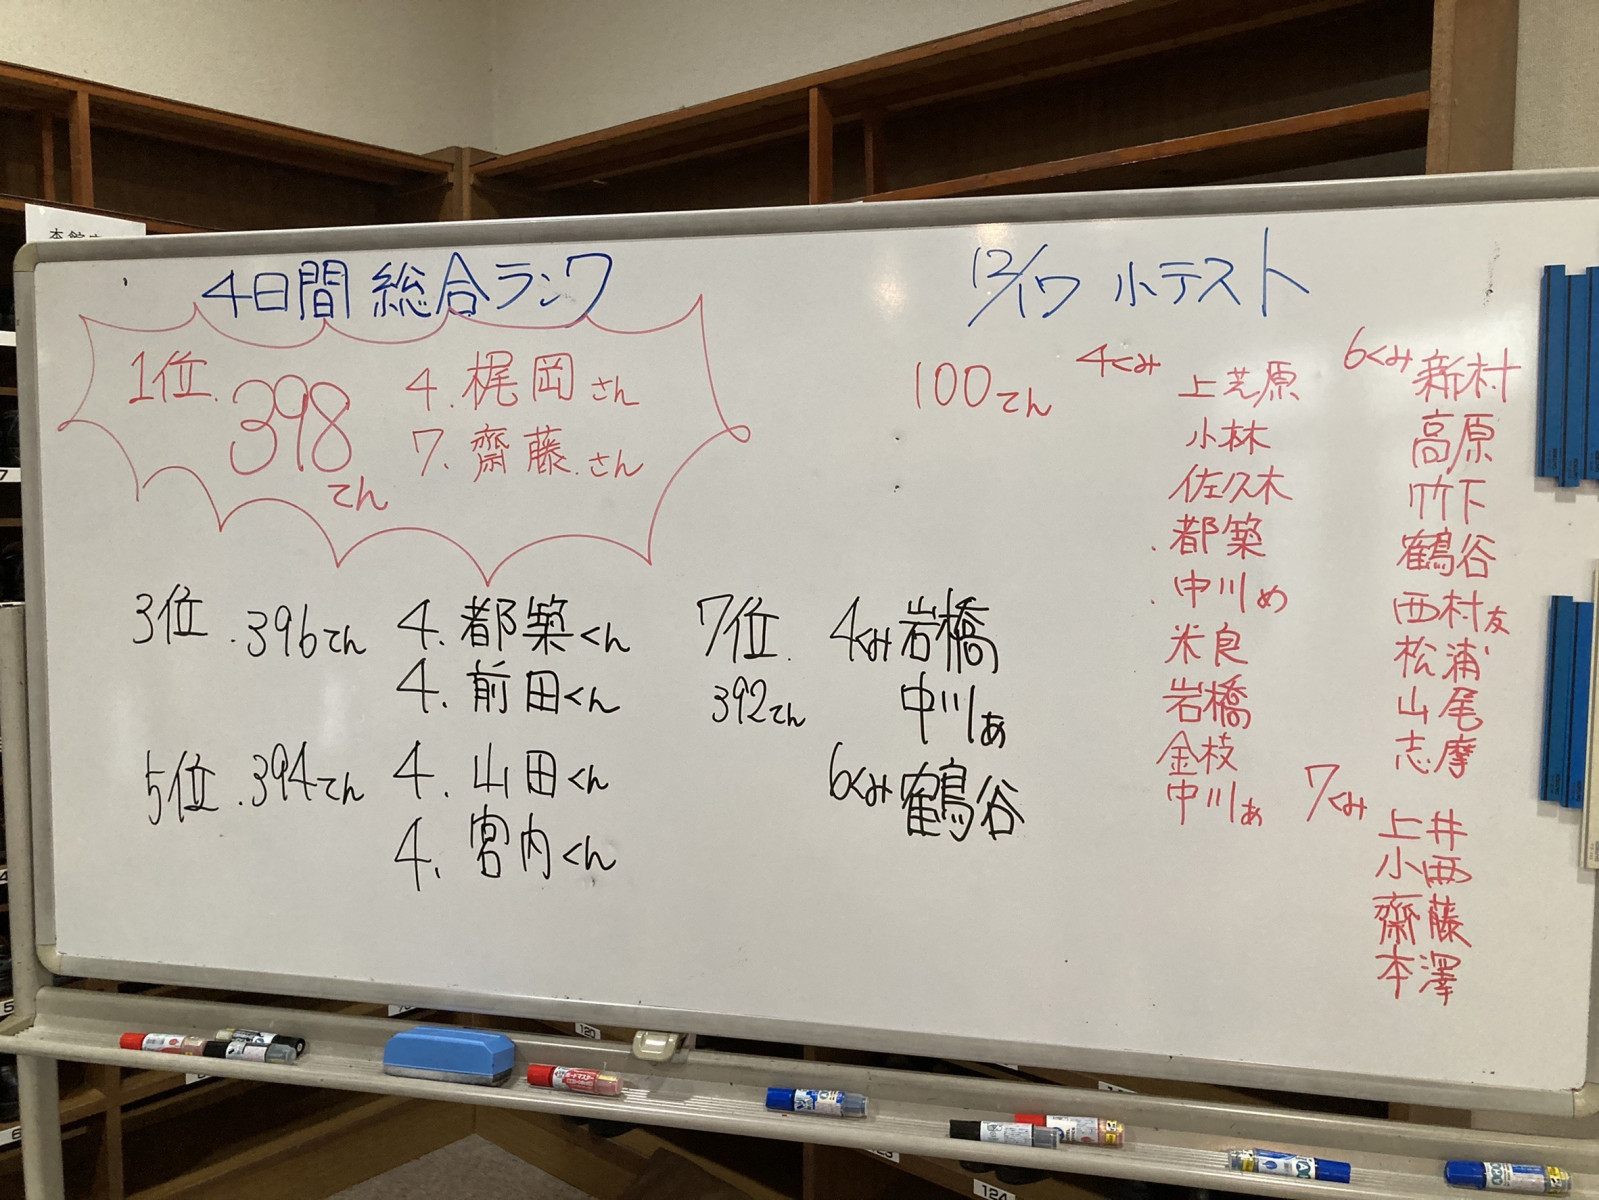 4日間 総合ランク
1位. 398てん
4. 梶岡さん
7. 齋藤.さん
3位. 396てん 4. 都築くん
4. 前田くん
5位. 394てん 4. 山田くん
4. 宮内くん
7位. 4くみ岩橋
392てん 中川ぁ
6くみ鶴谷
12/17 小テスト
100てん
4くみ 上芝原
小林
佐久木
都築
中川め
米良
岩橋
金枝
中川ぁ
6くみ 新村
高原
竹下
鶴谷
西村友
松浦
山尾
志摩
7くみ 上井
小西
齋藤
本澤
120
124